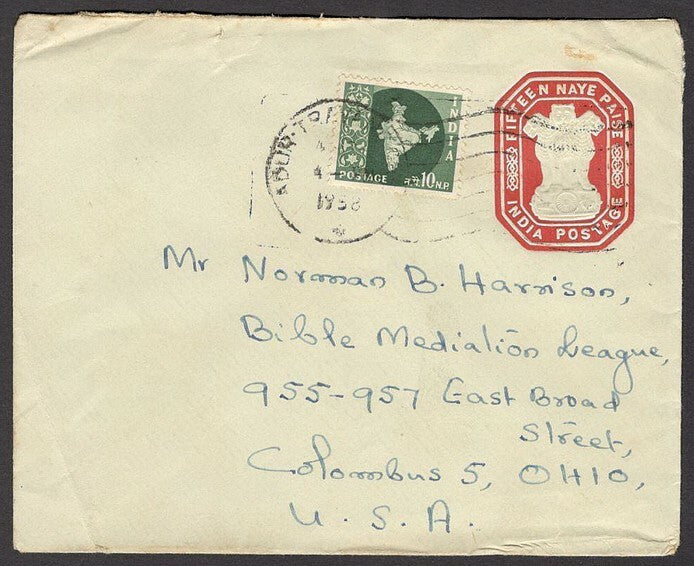 FIFTEEN NAYE PAISE
INDIA POSTAGE
INDIA
POSTAGE न.पै.10 N.P.
1958
Mr Norman B. Harrison,
Bible Mediation League,
955-957 East Broad
Street,
Colombus 5, OHIO,
U. S. A.